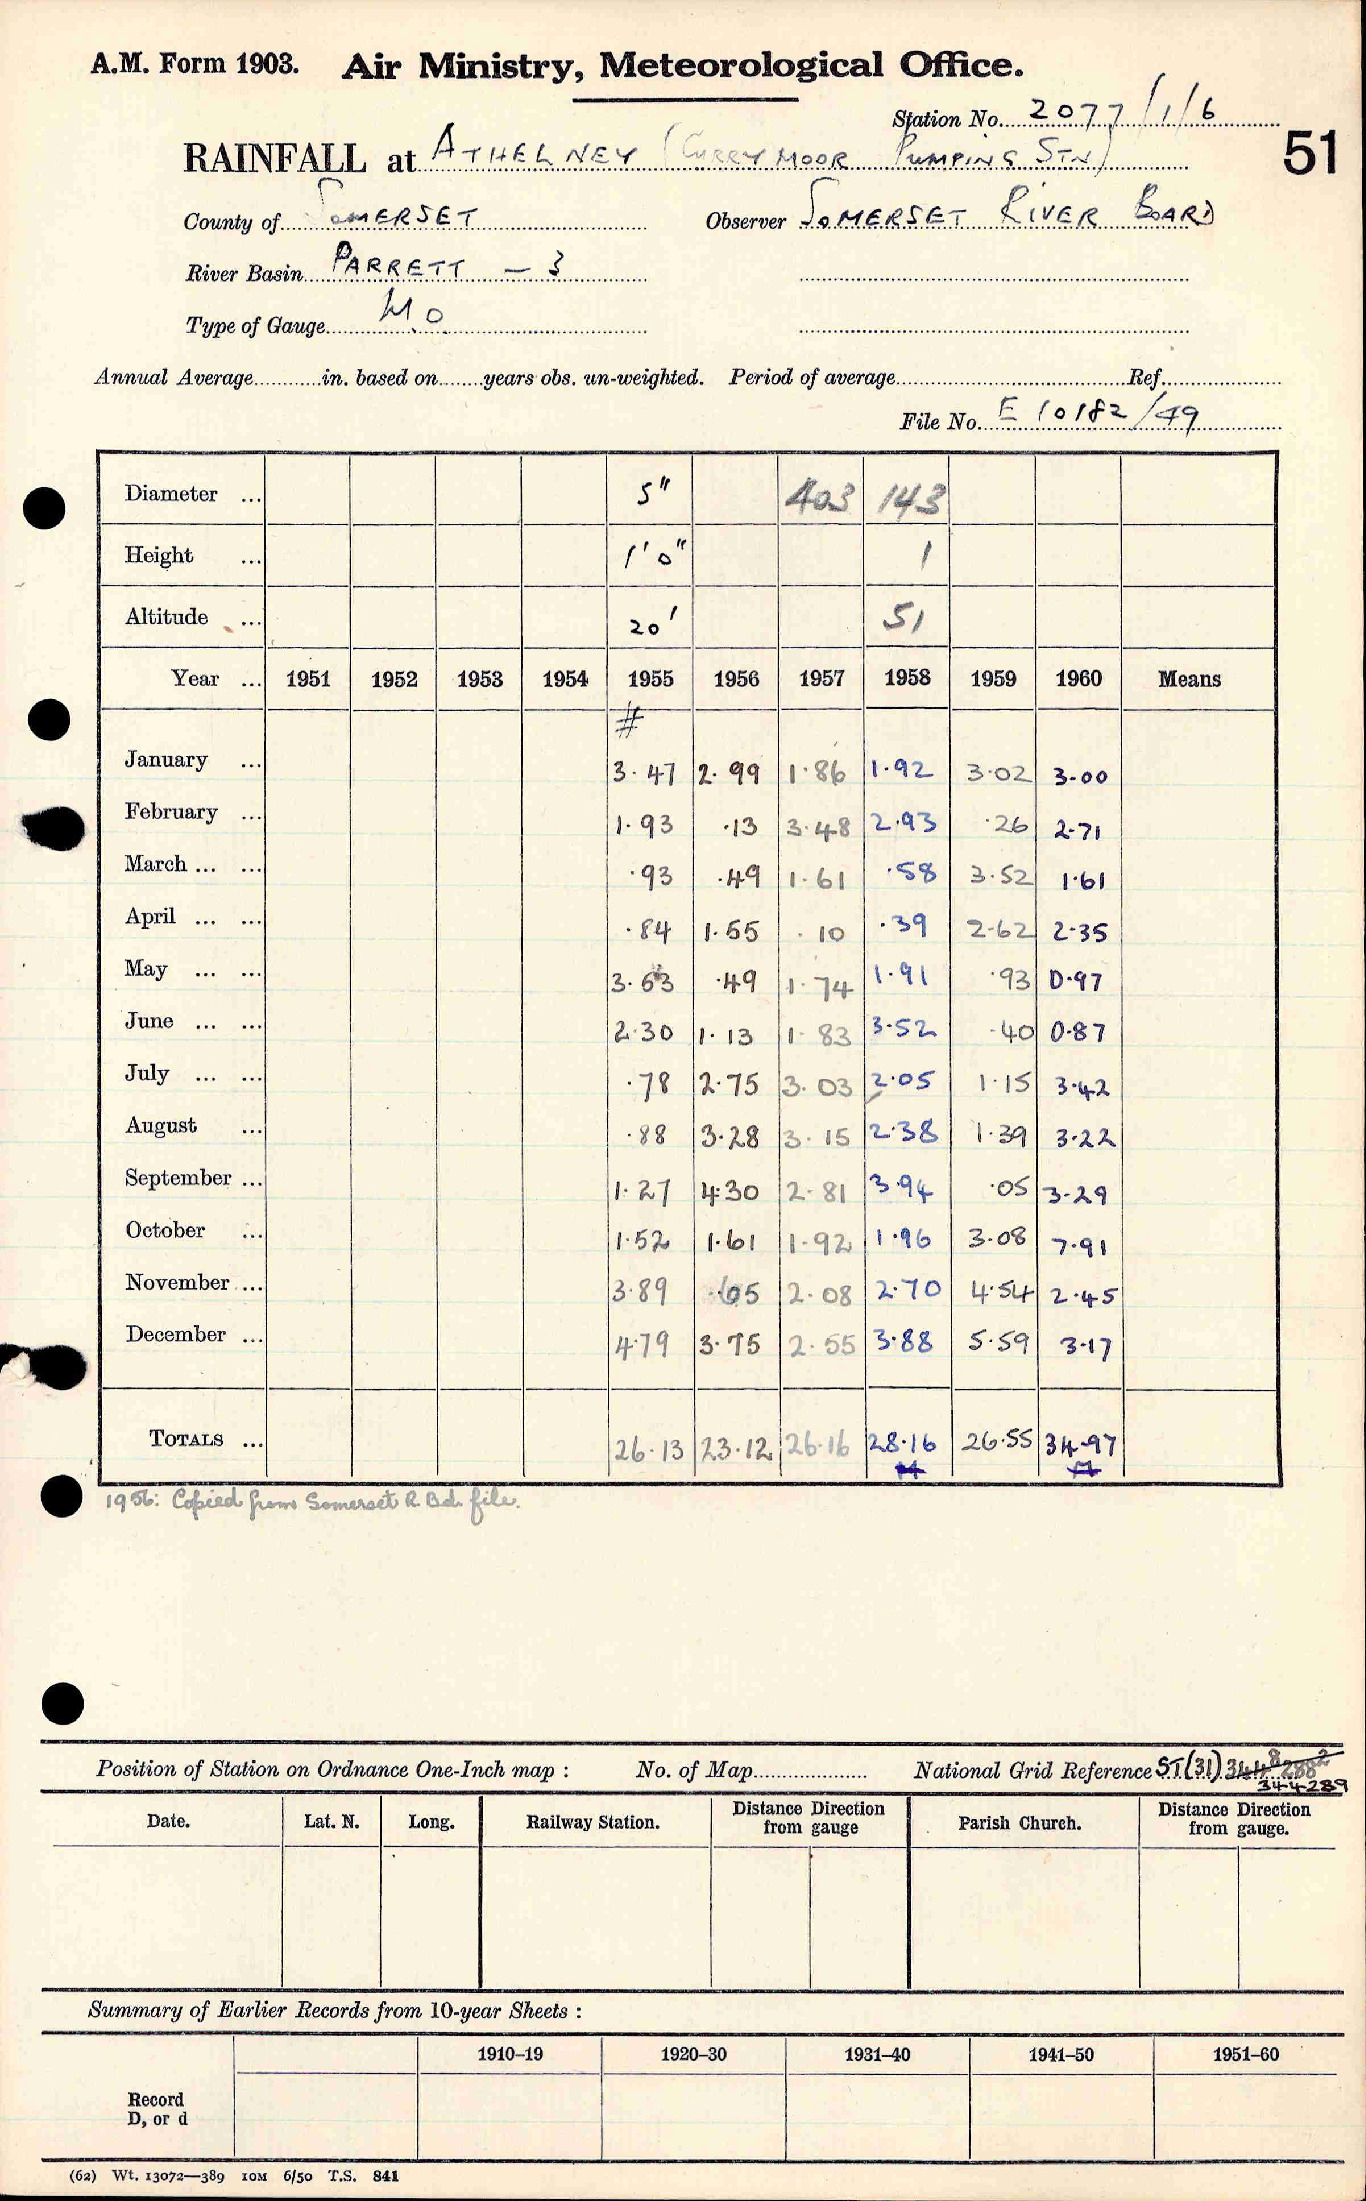 A.M. Form 1903. Air Ministry, Meteorological Office.
Station No. 2077/1/6
51
RAINFALL at ATHELNEY (CURRYMOOR PUMPING STN)
County of SOMERSET Observer SOMERSET RIVER BOARD
River Basin PARRETT - 3
Type of Gauge MO
Annual Average in. based on years obs. un-weighted. Period of average Ref.
File No. E 10182/49
Diameter ... 5" 403 143
Height ... 1'0" 1
Altitude ... 20' 51
Year ... 1951 1952 1953 1954 1955 1956 1957 1958 1959 1960 Means
#
January ... 3.47 2.99 1.86 1.92 3.02 3.00
February ... 1.93 .13 3.48 2.93 .26 2.71
March ... ... .93 .49 1.61 .58 3.52 1.61
April ... ... .84 1.55 .10 .39 2.62 2.35
May ... ... 3.53 .49 1.74 1.91 .93 0.97
June ... ... 2.30 1.13 1.83 3.52 .40 0.87
July ... ... .78 2.75 3.03 2.05 1.15 3.42
August ... .88 3.28 3.15 2.38 1.39 3.22
September ... 1.27 4.30 2.81 3.94 .05 3.29
October ... 1.52 1.61 1.92 1.96 3.08 7.91
November ... 3.89 .65 2.08 2.70 4.54 2.45
December ... 4.79 3.75 2.55 3.88 5.59 3.17
TOTALS ... 26.13 23.12 26.16 28.16 26.55 34.97
1956: Copied from Somerset R. Bd. file.
Position of Station on Ordnance One-Inch map : No. of Map National Grid Reference ST(31) 344 288
344289
Date. Lat. N. Long. Railway Station. Distance Direction from gauge Parish Church. Distance Direction from gauge.
Summary of Earlier Records from 10-year Sheets :
1910–19 1920–30 1931–40 1941–50 1951–60
Record
D, or d
(62) Wt. 13072—389 10M 6/50 T.S. 841